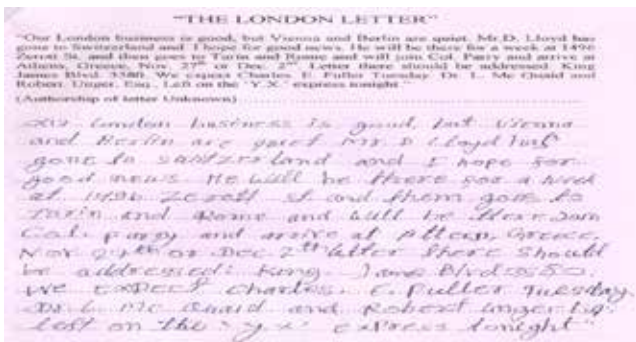 "THE LONDON LETTER"
"Our London business is good, but Vienna and Berlin are quiet. Mr.D. Lloyd has
gone to Switzerland and I hope for good news. He will be there for a week at 1496
Zerott St. and then goes to Turin and Rome and will join Col. Parry and arrive at
Athens, Greece, Nov. 27th or Dec. 2nd. Letter there should be addressed. King
James Blvd. 3580. We expect Charles E. Fuller Tuesday. Dr. L. Mc Quaid and
Robert Unger, Esq., Left on the "Y.X." express tonight."
(Authorship of letter Unknown)
London business is good, but Vienna
and Berlin are quiet Mr D Lloyd has
gone to and I hope for
good news He will be there for a week
at 1496 Zerott st and them goes to
Turin and Rome and will be there Join
Col. parry and arrive at Greece,
Nov 27th or Dec. 2th latter there should
be addressed: King. Jame Blvd 3550.
We expect charles. E. Fuller Tuesday.
Dr L. Mc Quaid and Robert unger
left on the "y.x" express tonight"